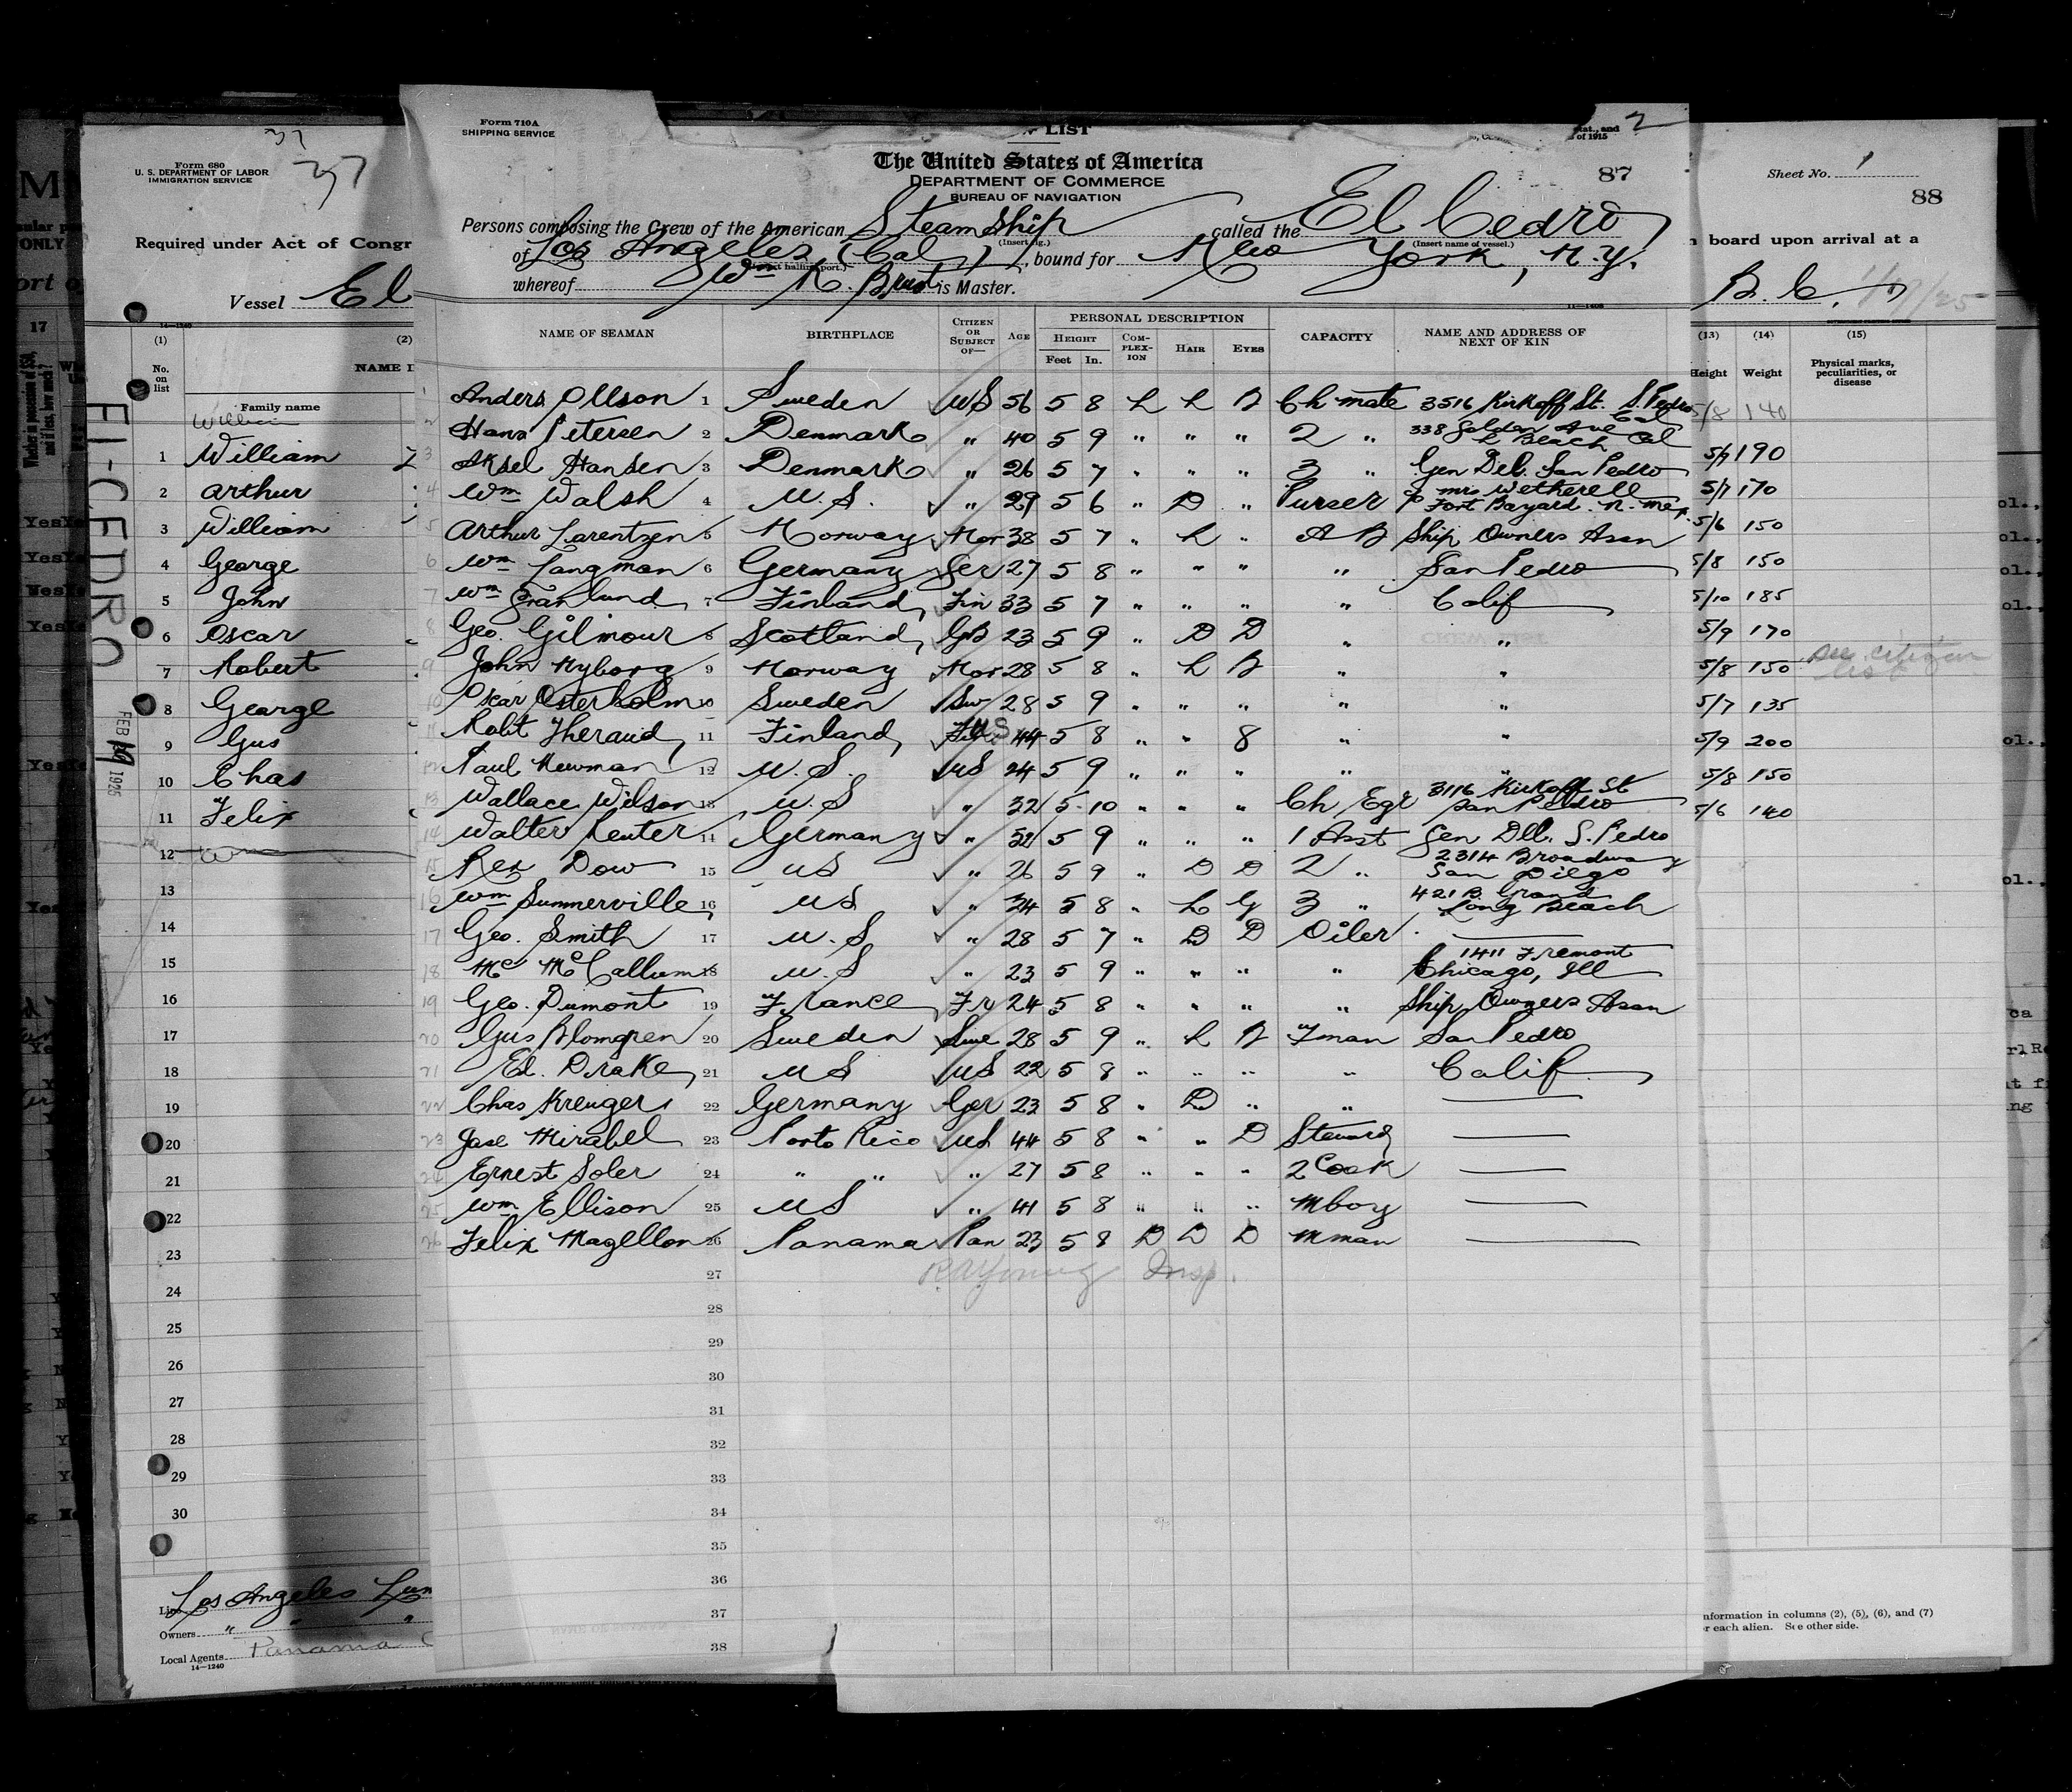 Form 710A
SHIPPING SERVICE
LIST
stat., and 2
of 1915
The United States of America
DEPARTMENT OF COMMERCE
BUREAU OF NAVIGATION
87
Persons composing the Crew of the American Steam Ship called the El Cedro
(Insert rig.) (Insert name of vessel.)
of Los Angeles (Cal), bound for New York, N.Y.
whereof Wm K. is Master.
NAME OF SEAMAN BIRTHPLACE CITIZEN OR SUBJECT OF— AGE PERSONAL DESCRIPTION CAPACITY NAME AND ADDRESS OF NEXT OF KIN
HEIGHT Feet In. COMPLEXION HAIR EYES
1 Anders Ollson 1 Sweden US 56 5 8 L L B Ch mate 3516 Kirkoff St. S. Pedro Cal
2 Hans Petersen 2 Denmark " 40 5 9 " " " 2 " 338 Golden Ave L Beach Cal
3 Aksel Hansen 3 Denmark " 26 5 7 " " " 3 " Gen Del. San Pedro
4 Wm Walsh 4 U.S. " 29 5 6 " D " Purser % Mrs Wetherell Fort Bayard. N. Mex.
5 Arthur Larentzen 5 Norway Nor 38 5 7 " L " A B Ship Owners Assn
6 Wm Langman 6 Germany Ger 27 5 8 " " " " San Pedro
7 Wm Granlund 7 Finland Fin 33 5 7 " " " " Calif
8 Geo. Gilmour 8 Scotland GB 23 5 9 " D D " "
9 John Nyborg 9 Norway Nor 28 5 8 " L B " "
10 Oskar Osterholm 10 Sweden Sw 28 5 9 " " " " "
11 Robt Theraud 11 Finland US 44 5 8 " " 8 " "
12 Paul Newman 12 U.S. US 24 5 9 " " " " "
13 Wallace Wilson 13 U.S " 32 5-10 " " " Ch Egr 3116 Kirkoff St San Pedro
14 Walter Reuter 14 Germany " 5 9 " " " 1 Asst Gen Dll. S. Pedro
15 Rex Dow 15 US " 26 5 9 " D D 2 " 2314 Broadway San Diego
16 Wm Summerville 16 US " 34 5 8 " L G 3 " 421 B. Grand Long Beach
17 Geo. Smith 17 U.S " 28 5 7 " D D Oiler
18 Mc McCallum 18 U.S " 23 5 9 " " " " 1411 Fremont Chicago, Ill
19 Geo. Dumont 19 France Fr 24 5 8 " " " " Ship Owners Assn
20 Gus Blomgren 20 Sweden Swe 28 5 9 " L B Fman San Pedro
21 Ed. Drake 21 US US 22 5 8 " " " " Calif
22 Chas Kreuger 22 Germany Ger 23 5 8 " D " "
23 Jose Mirabel 23 Porto Rico US 44 5 8 " " D Steward
24 Ernest Soler 24 " " " 27 5 8 " " " 2 Cook
25 Wm Ellison 25 US " 41 5 8 " " " Mboy
26 Felix Magellon 26 Panama Pan 23 5 8 D D D Mman
27 Insp.
28
29
30
31
32
33
34
35
36
37
38
37
37
Form 680
U. S. DEPARTMENT OF LABOR
IMMIGRATION SERVICE
Required under Act of Congr
Vessel El
14—1240
(1) (2)
No. on list
NAME I
Family name
William
1 William
2 Arthur
3 William
4 George
5 John
6 Oscar
7 Robert
8 George
9 Gus
10 Chas
11 Felix
12
13
14
15
16
17
18
19
20
21
22
23
24
25
26
27
28
29
30
EL-CEDRO
FEB 1925
Line Los Angeles
Owners " " "
Local Agents Panama
14—1240
Sheet No. 1
88
board upon arrival at a
B. C.
(13) (14) (15)
Height Weight Physical marks, peculiarities, or disease
5/8 140
5/7 190
5/7 170
5/6 150
5/8 150
5/10 185
5/9 170
5/8 150 see citizen list
5/7 135
5/9 200
5/8 150
5/6 140
nformation in columns (2), (5), (6), and (7)
r each alien. See other side.